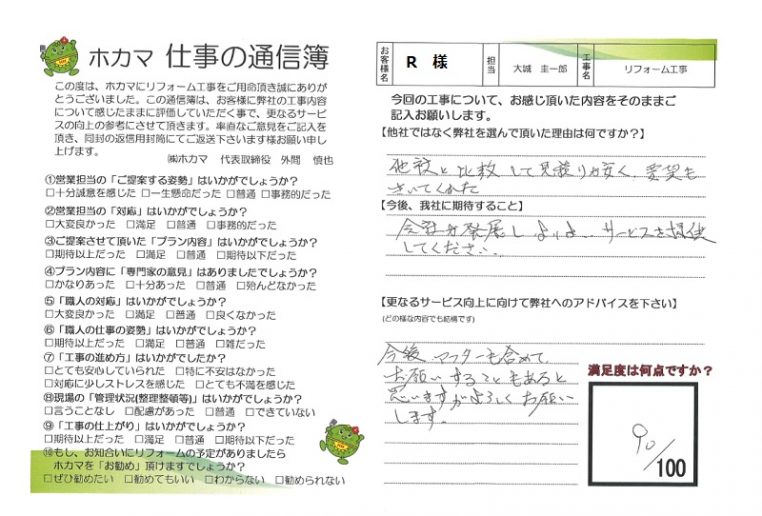 ホカマ 仕事の通信簿
この度は、ホカマにリフォーム工事をご用命頂き誠にありが
とうございました。この通信簿は、お客様に弊社の工事内容
について感じたままに評価していただく事で、更なるサービ
スの向上の参考にさせて頂きます。率直なご意見をご記入を
頂き、同封の返信用封筒にてご返送下さいます様お願い申し
上げます。
㈱ホカマ 代表取締役 外間 慎也
①営業担当の「ご提案する姿勢」はいかがでしょうか?
□十分誠意を感じた □一生懸命だった □普通 □事務的だった
②営業担当の「対応」はいかがでしょうか?
□大変良かった □満足 □普通 □事務的だった
③ご提案させて頂いた「プラン内容」はいかがでしょうか?
□期待以上だった □満足 □普通 □期待以下だった
④プラン内容に「専門家の意見」はありましたでしょうか?
□かなりあった □十分あった □普通 □殆んどなかった
⑤「職人の対応」はいかがでしょうか?
□大変良かった □満足 □普通 □良くなかった
⑥「職人の仕事の姿勢」はいかがでしょうか?
□期待以上だった □満足 □普通 □雑だった
⑦「工事の進め方」はいかがでしたか?
□とても安心していられた □特に不安はなかった
□対応に少しストレスを感じた □とても不満を感じた
⑧現場の「管理状況(整理整頓等)」はいかがでしょうか?
□言うことなし □配慮があった □普通 □できていない
⑨「工事の仕上がり」はいかがでしょうか?
□期待以上だった □満足 □普通 □期待以下だった
⑩もし、お知合いにリフォームの予定がありましたら
ホカマを「お勧め」頂けますでしょうか?
□ぜひ勧めたい □勧めてもいい □わからない □勧められない
お客様名 R 様 担当 大城 圭一郎 工事名 リフォーム工事
今回の工事について、お感じ頂いた内容をそのままご
記入お願します。
【他社ではなく弊社を選んで頂いた理由は何ですか?】
他社と比較して見積りが安く、要望も
きいてくれた
【今後、我社に期待すること】
会社が発展しよりよいサービスを提供
してください。
【更なるサービス向上に向けて弊社へのアドバイスを下さい】
(どの様な内容でも結構です)
今後 アフターも含めて、
お願いすることもあると
思いますがよろしくお願い
します。
満足度は何点ですか?
90/100